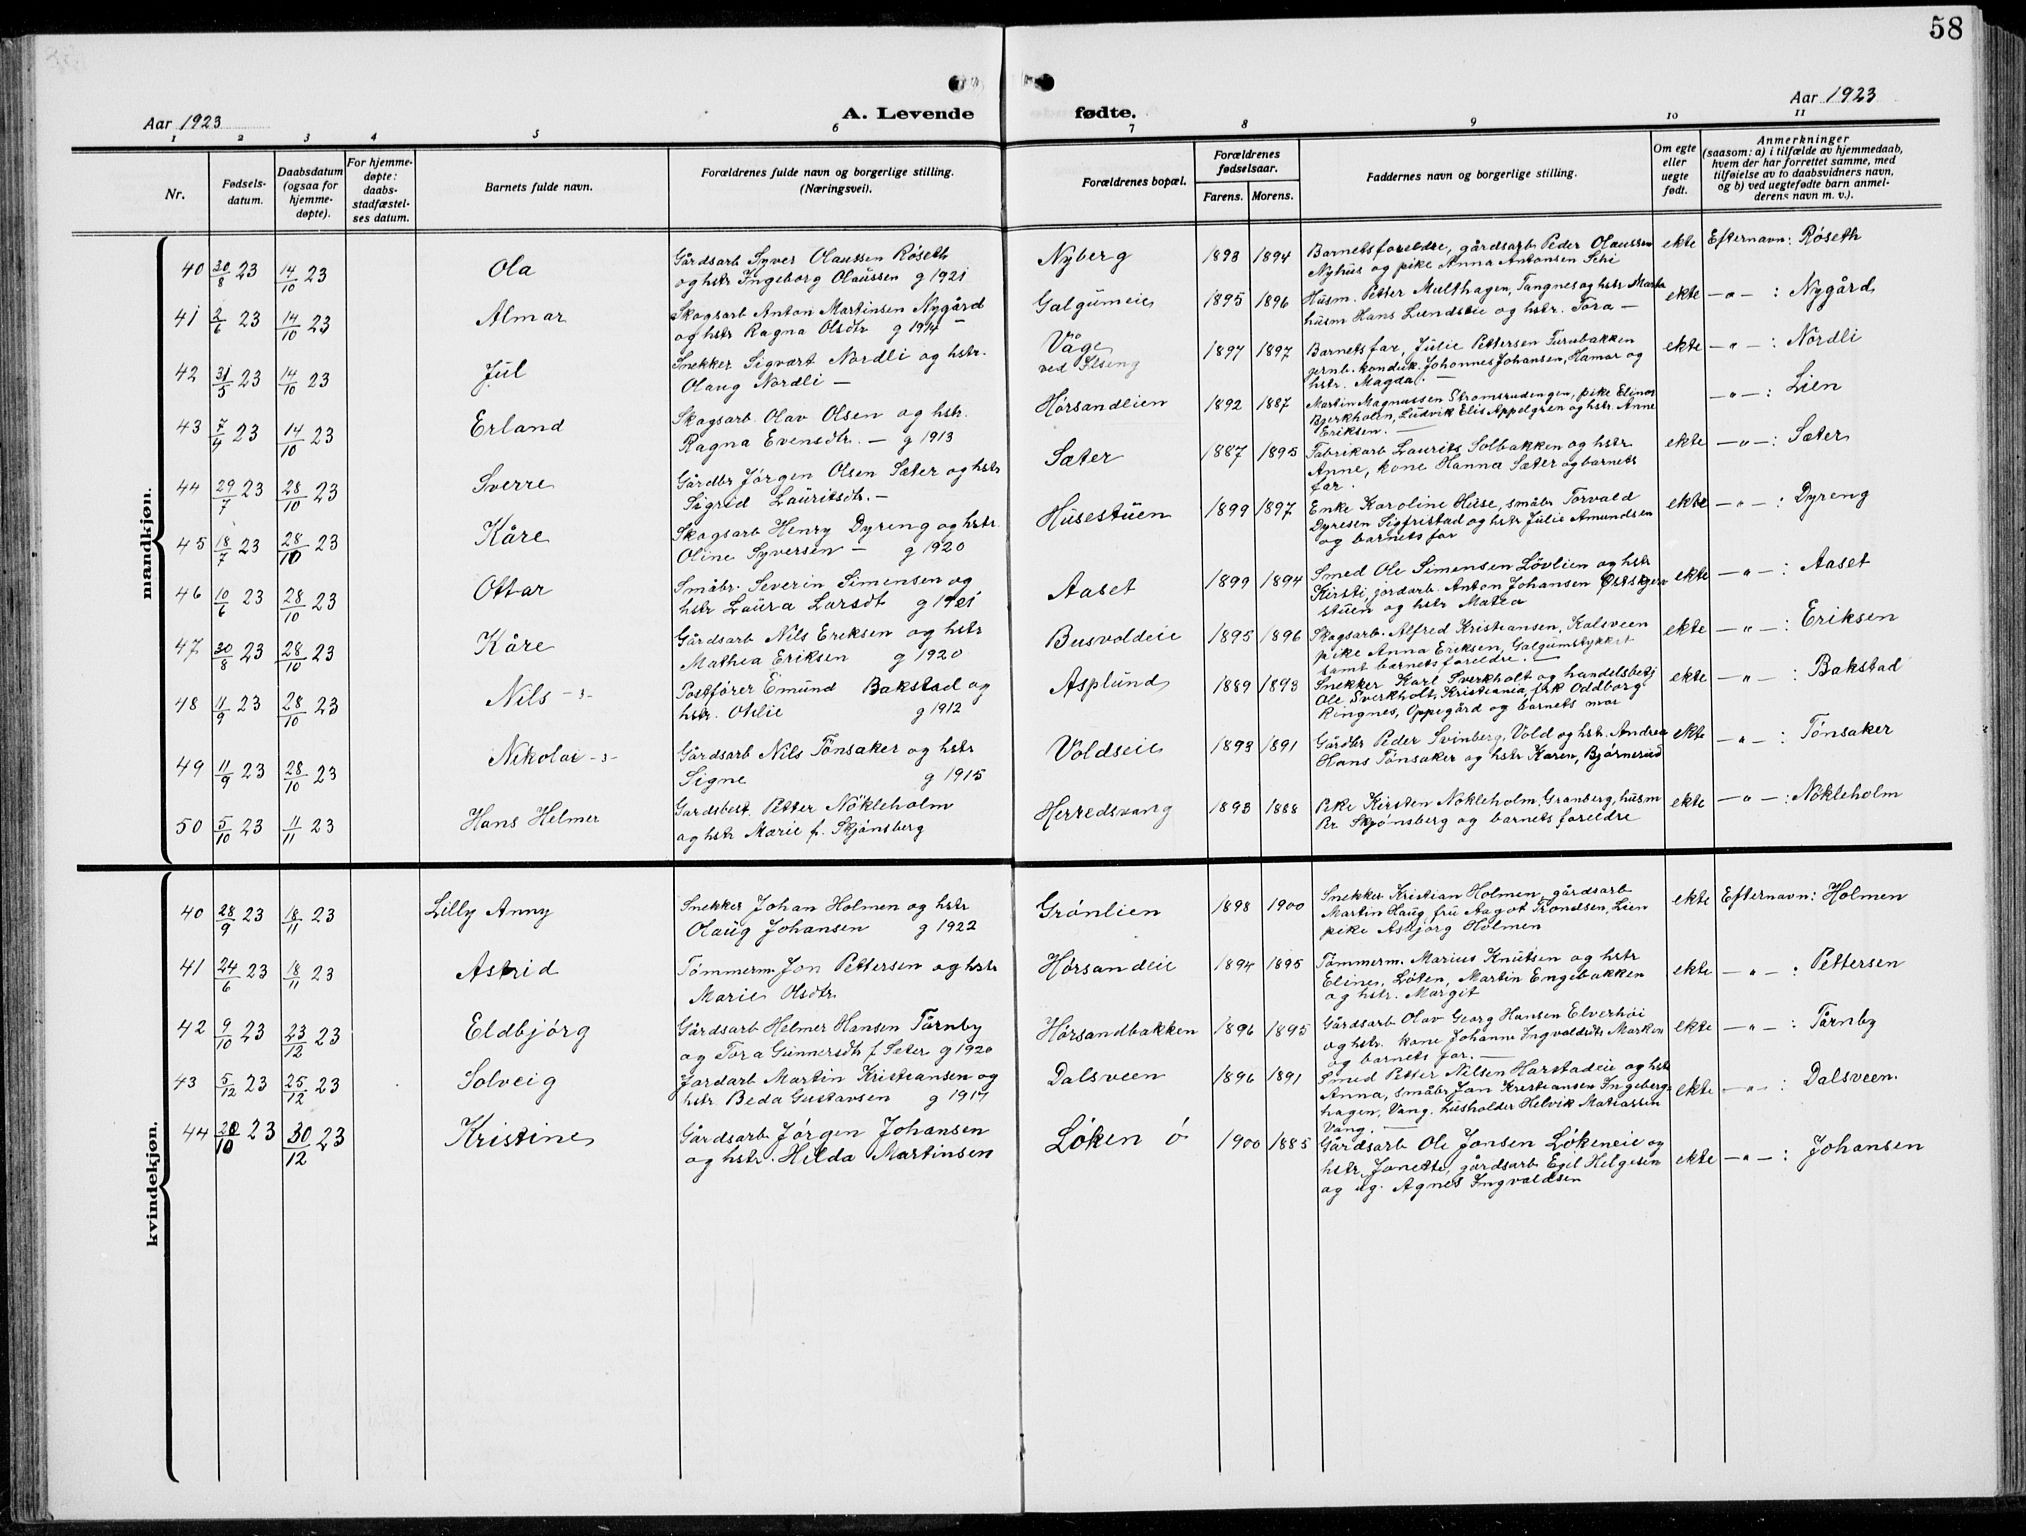 58
Aar 1923
A. Levende fødte.
Aar 1923
1 2 3 4 5 6 7 8 9 10 11
Nr.
Fødsels-
datum.
Daabsdatum
(ogsaa for
hjemme-
døpte).
For hjemme-
døpte:
daabs-
stadfæstel-
ses datum.
Barnets fulde navn.
Forældrenes fulde navn og borgerlige stilling.
(Næringsvei).
Forældrenes bopæl.
Forældrenes
fødselsaar.
Farens. Morens.
Faddernes navn og borgerlige stilling.
Om egte
eller
uegte
født.
Anmerkninger
(saasom: a) i tilfælde av hjemmedaab,
hvem der har forrettet samme, med
tilføielse av to daabsvidners navn,
og b) ved uegtefødte barn anmel-
derens navn m. v.).
mandkjøn.
40 30/8 23 14/10 23 Ola
Gårdsarb Syver Olaussen Røseth
og hstr Ingeborg Olaussen g 1921
Nyberg 1893 1894
Barnets foreldre, gårdsarb Peder Olaussen
Nyhus og pike Anna Antonsen Seti
ekte Efternavn: Røseth
41 2/6 23 14/10 23 Almar
Skogsarb Anton Martinsen Nygård
og hstr Ragna Olsdtr g 1914 —
Galgumeie 1895 1896
Husm. Petter Multhagen, Tangnes og hstr Marta
husm Hans Lundstie og hstr. Tora —
ekte —„— : Nygård
42 31/5 23 14/10 23 Jul
Snekker Sigvart Nordli og hstr.
Olaug Nordli —
Våge
ved Ilseng
1897 1897
Barnets far, Julie Pettersen Furubakken
jernb. konduk. Johannes Johansen, Hamar og
hstr. Magda. —
ekte —„— : Nordli
43 7/4 23 14/10 23 Erland
Skogsarb. Olav Olsen og hstr.
Ragna Evensdtr. — g 1913
Hørsandlien 1892 1887
Martin Magnussen Strømsrudengen, pike Elinor
Bjerkholm, Ludvik Elis Appelgren og hstr. Anne
Eriksen. —
—„— : Lien
44 29/7 23 28/10 23 Sverre
Gårdbr Jørgen Olsen Sæter og hstr
Sigrid Lauritsdtr. —
Sæter 1887 1895
Fabrikarb Laurits Solbakken og hstr.
Anne, kone Hanna Sæter og barnets
far.
ekte —„— : Sæter
45 18/7 23 28/10 23 Kåre
Skogsarb Henry Dyreng og hstr.
Oline Syversen — g 1920
Husestuen 1899 1897
Enke Karoline Huse, småbr Torvald
Dyresen Sigfristad og hstr Julie Amundsen
og barnets far
ekte —„— : Dyreng
46 10/6 23 28/10 23 Ottar
Småbr. Severin Simensen og
hstr Laura Larsdt g 1921
Aaset 1899 1894
Smed Ole Simensen Løvlien og hstr
Kirsti, jordarb. Anton Johansen
stuen og hstr Matea
ekte —„— : Aaset
47 30/8 23 28/10 23 Kåre
Gårdsarb Nils Eriksen og hstr
Mathea Eriksen g 1920
Busvoldeie 1895 1896
Skogsarb. Alfred Kristiansen, Kalsveen
pike Anna Eriksen, Galgumstykket
samt barnets foreldre. —
ekte —„— : Eriksen
48 11/9 23 28/10 23 Nils -s-
Postfører Emund Bakstad og
hstr. Otilie g 1912
Asplund 1889 1893
Snekker Karl Sverkholt og handelsbetj
Ole Sverkholt, Kristiania, frk Oddborg
Ringnes, Oppegård og barnets mor
ekte —„— : Bakstad
49 11/9 23 28/10 23 Nikolai -s-
Gårdsarb Nils Tønsaker og hstr
Signe g 1915
Voldseie 1893 1891
Gårdbr Peder Svinberg, Vold og hstr. Andrea
Hans Tønsaker og hstr Karen, Bjørnerud
ekte —„— : Tønsaker
50 5/10 23 11/11 23 Hans Helmer
Gardsbest. Petter Nökleholm
og hstr Marie f. Skjønsberg
Herredsvang 1893 1888
Pike Kirsten Nökleholm, Granberg, husm
Pr Skjønsberg og barnets foreldre
ekte —„— : Nökleholm
kvindekjøn.
40 28/9 23 18/11 23 Lilly Anny
Snekker Johan Holmen og hstr
Olaug Johansen g 1922
Grønlien 1898 1900
Snekker Kristian Holmen, gårdsarb
Martin Haug, fru Aagot Trondsen, Lien
pike Asbjørg Holmen
ekte Efternavn: Holmen
41 24/6 23 18/11 23 Astrid
Tømmerm. Jon Pettersen og hstr
Marie Olsdtr.
Hørsandeie 1894 1895
Tømmerm. Marius Knutsen og hstr
Eline, Løten, Martin Engebakken
og hstr. Margit
ekte —„— : Pettersen
42 9/10 23 23/12 23 Eldbjørg
Gårdsarb Helmer Hansen Tørnby
og Tora Gunnersdtr f Sæter g 1920
Hørsandbakken 1896 1895
Gårdsarb Olav Georg Hansen Elverhøi
og hstr. kone Johanne Ingvaldsdtr Marken
og barnets far. —
ekte —„— : Tørnby
43 5/12 23 25/12 23 Solveig
Jordarb Martin Kristiansen og
hstr Beda Gustavsen g 1917
Dalsveen 1896 1891
Smed Petter Nilsen Harstadeie og hstr
Anna, småbr Jan Kristiansen Ingeberg-
hagen, Vang, husholder Helvik Matiassen
Vang. —
ekte —„— : Dalsveen.
44 20/10 23 30/12 23 Kristine
Gårdsarb Jørgen Johansen
og hstr. Hilda Martinsen
Løken ø 1900 1885
Gårdsarb Ole Jonsen Løkeneie og
hstr Jonette, gårdsarb Egil Helgesen
og ug. Agnes Ingvaldsen
ekte —„— : Johansen